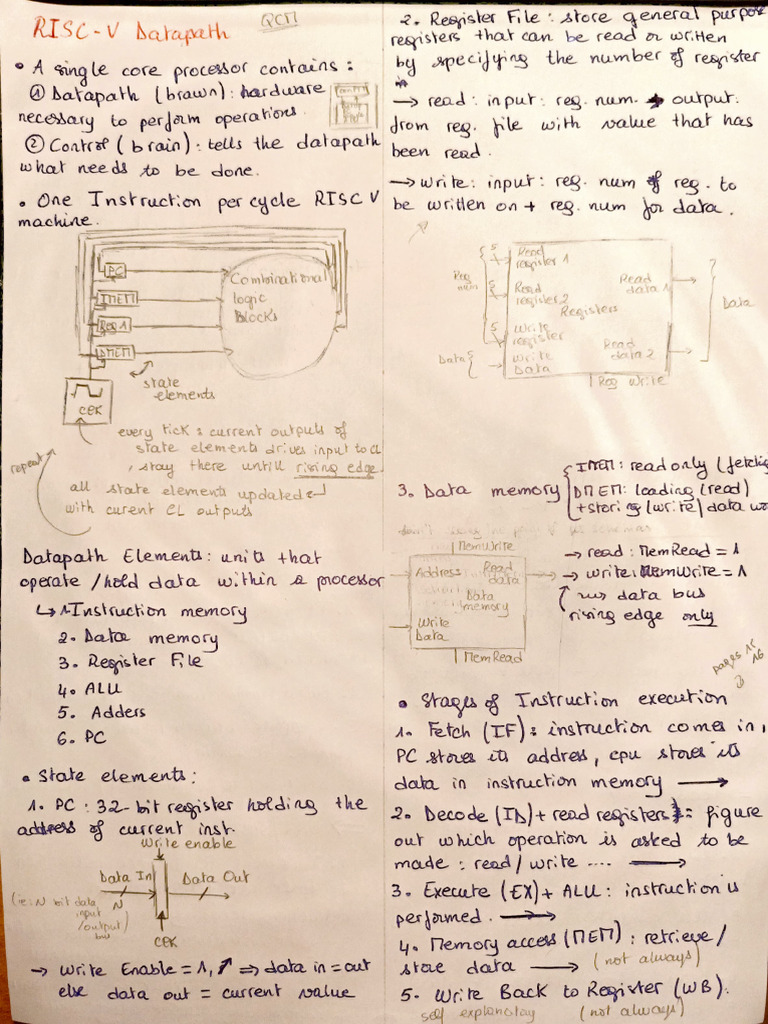 RISC-V Datapath
QCM
• A single core processor contains:
① Datapath (brawn): hardware
necessary to perform operations.
② Control (brain): tells the datapath
what needs to be done.
• One Instruction per cycle RISC V
machine.
PC
IMEM
Reg 1
DMEM
Combinational
logic
Blocks
state
elements
CLK
every tick: current outputs of
state elements drives input to CL
, stay there untill rising edge
all state elements updated
with curent CL outputs
repeat
Datapath Elements: units that
operate/hold data within a processor
↳ 1. Instruction memory
2. Data memory
3. Register File
4. ALU
5. Adders
6. PC
• State elements:
1. PC: 32-bit register holding the
address of current inst.
Write enable
Data In
Data Out
N
(ie: N bit data
input
/output)
bus
CLK
→ Write Enable = 1, ⇒ data in = out
else data out = current value
2. Register File: store general purpose
registers that can be read or written
by specifying the number of register
→ read: input: reg. num. → output:
from reg. file with value that has
been read.
→ Write: input: reg. num of reg. to
be written on + reg. num for data.
Reg
num
5
5
5
Read
register 1
Read
register 2
Registers
Write
register
Write
Data
Read
data 1
Read
data 2
Data
Data
Reg Write
3. Data memory
IMEM: read only (fetchin
DMEM: loading (read)
+ storing (write) data wo
MemWrite
Address
Read
data
Data
memory
Write
Data
MemRead
→ read: MemRead = 1
→ write: MemWrite = 1
data bus
rising edge only
pages 15
16
• Stages of Instruction execution
1. Fetch (IF): instruction comes in,
PC stores its address, cpu stores its
data in instruction memory →
2. Decode (ID) + read registers: figure
out which operation is asked to be
made: read/write .... →
3. Execute (EX) + ALU: instruction is
performed. →
4. Memory access (MEM): retrieve/
store data → (not always)
5. Write Back to Register (WB).
self explanatory (not always)